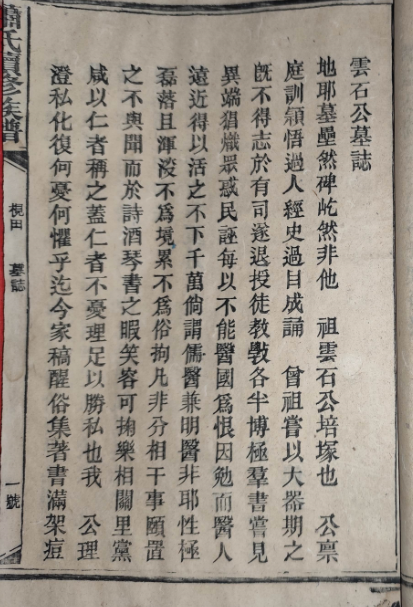 雲石公墓誌
地耶墓壘然碑屹然非他　祖雲石公培塚也　公稟
庭訓頴悟過人經史過目成誦　曾祖嘗以大器期之
既不得志於有司遂退授徒教斆各半博極羣書嘗見
異端猖熾眾惑民誣每以不能醫國爲恨因勉而醫人
遠近得以活之不下千萬倘謂儒醫兼明醫非耶性極
磊落且渾涵不爲境累不爲俗拘凡非分相干事頤置
之不與聞而於詩酒琴書之暇笑容可掬樂相關里黨
咸以仁者稱之蓋仁者不憂理足以勝私也我　公理
澄私化復何憂何懼乎迄今家稿醒俗集著書滿架痘
蕭氏續修族譜
梘田　墓誌
一號